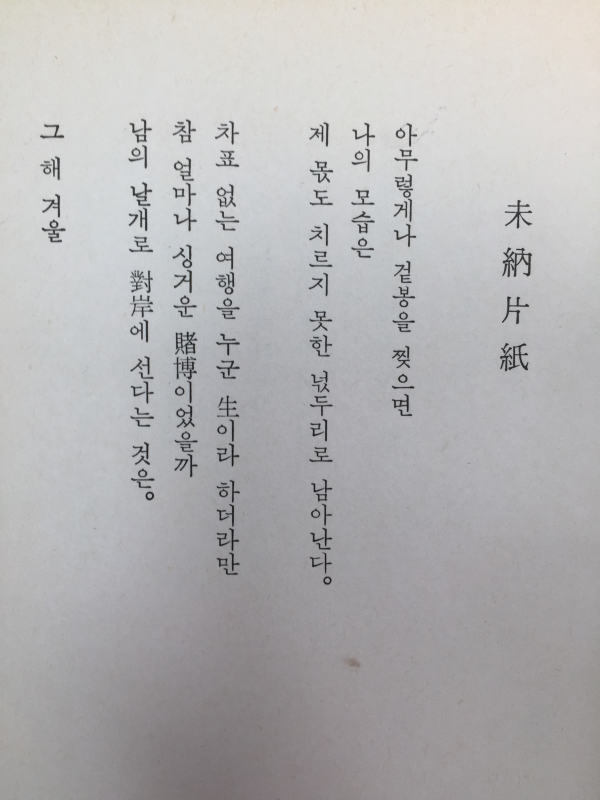 未納片紙
아무렇게나 겉봉을 찢으면
나의 모습은
제 몫도 치르지 못한 넋두리로 남아난다。
차표 없는 여행을 누군 生이라 하더라만
참 얼마나 싱거운 賭博이었을까
남의 날개로 對岸에 선다는 것은。
그 해 겨울